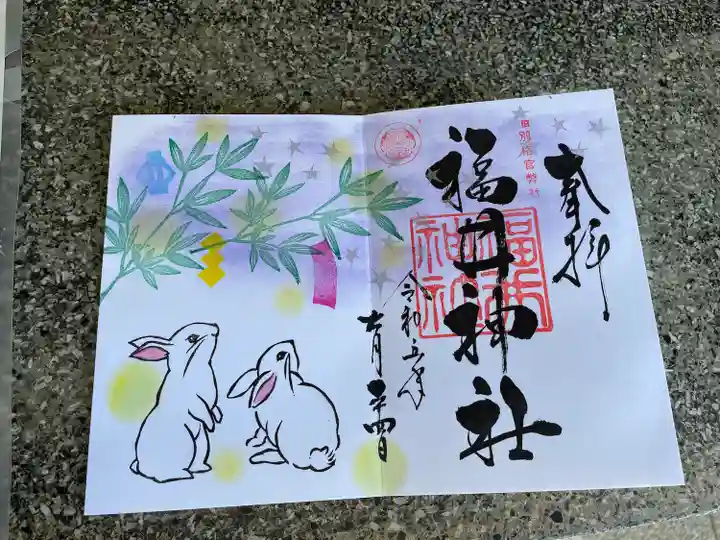 奉拝
旧別格官幣社
福井神社
福井神社
令和五年
七月二十四日